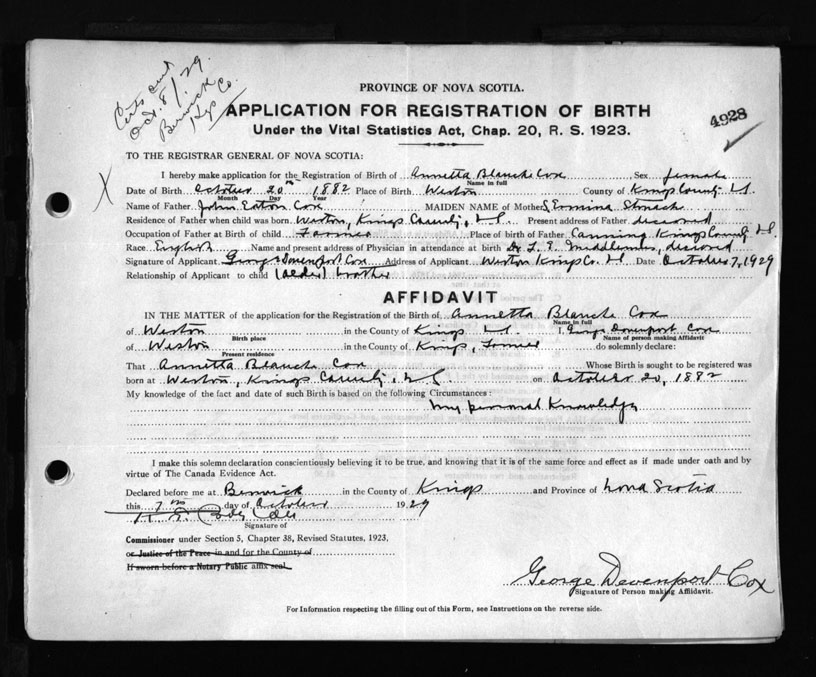 Oct. 8/29.
Berwick
Co.
PROVINCE OF NOVA SCOTIA.
APPLICATION FOR REGISTRATION OF BIRTH
4928
Under the Vital Statistics Act, Chap. 20, R. S. 1923.
TO THE REGISTRAR GENERAL OF NOVA SCOTIA:
I hereby make application for the Registration of Birth of Annetta Blanche Cox Sex female
Name in full
Date of Birth October 20th 1882 Place of Birth Weston County of Kings County N.S.
Month Day Year
Name of Father John Eaton Cox MAIDEN NAME of Mother Ermina
Residence of Father when child was born Weston, Kings County, N.S. Present address of Father deceased
Occupation of Father at Birth of child Farmer Place of Birth of Father Canning Kings County N.S.
Race English Name and present address of Physician in attendance at birth Dr. deceased
Signature of Applicant George Devenport Cox Address of Applicant Weston Kings Co. N.S. Date October 7, 1929
Relationship of Applicant to child (older) brother
AFFIDAVIT
IN THE MATTER of the application for the Registration of the Birth of Annetta Blanche Cox
Name in full
of Weston in the County of Kings N.S. I, George Devenport Cox
Birth place Name of person making Affidavit
of Weston in the County of Kings, Farmer do solemnly declare:
Present residence
That Annetta Blanche Cox Whose Birth is sought to be registered was
born at Weston, Kings County, N.S. on October 20, 1882
My knowledge of the fact and date of such Birth is based on the following Circumstances:
My personal Knowledge
I make this solemn declaration conscientiously believing it to be true, and knowing that it is of the same force and effect as if made under oath and by
virtue of The Canada Evidence Act.
Declared before me at Berwick in the County of Kings and Province of Nova Scotia
this 7th day of October 1929
Signature of
Commissioner under Section 5, Chapter 38, Revised Statutes, 1923,
or Justice of the Peace in and for the County of
If sworn before a Notary Public affix seal.
George Devenport Cox
Signature of Person making Affidavit.
For Information respecting the filling out of this Form, see Instructions on the reverse side.